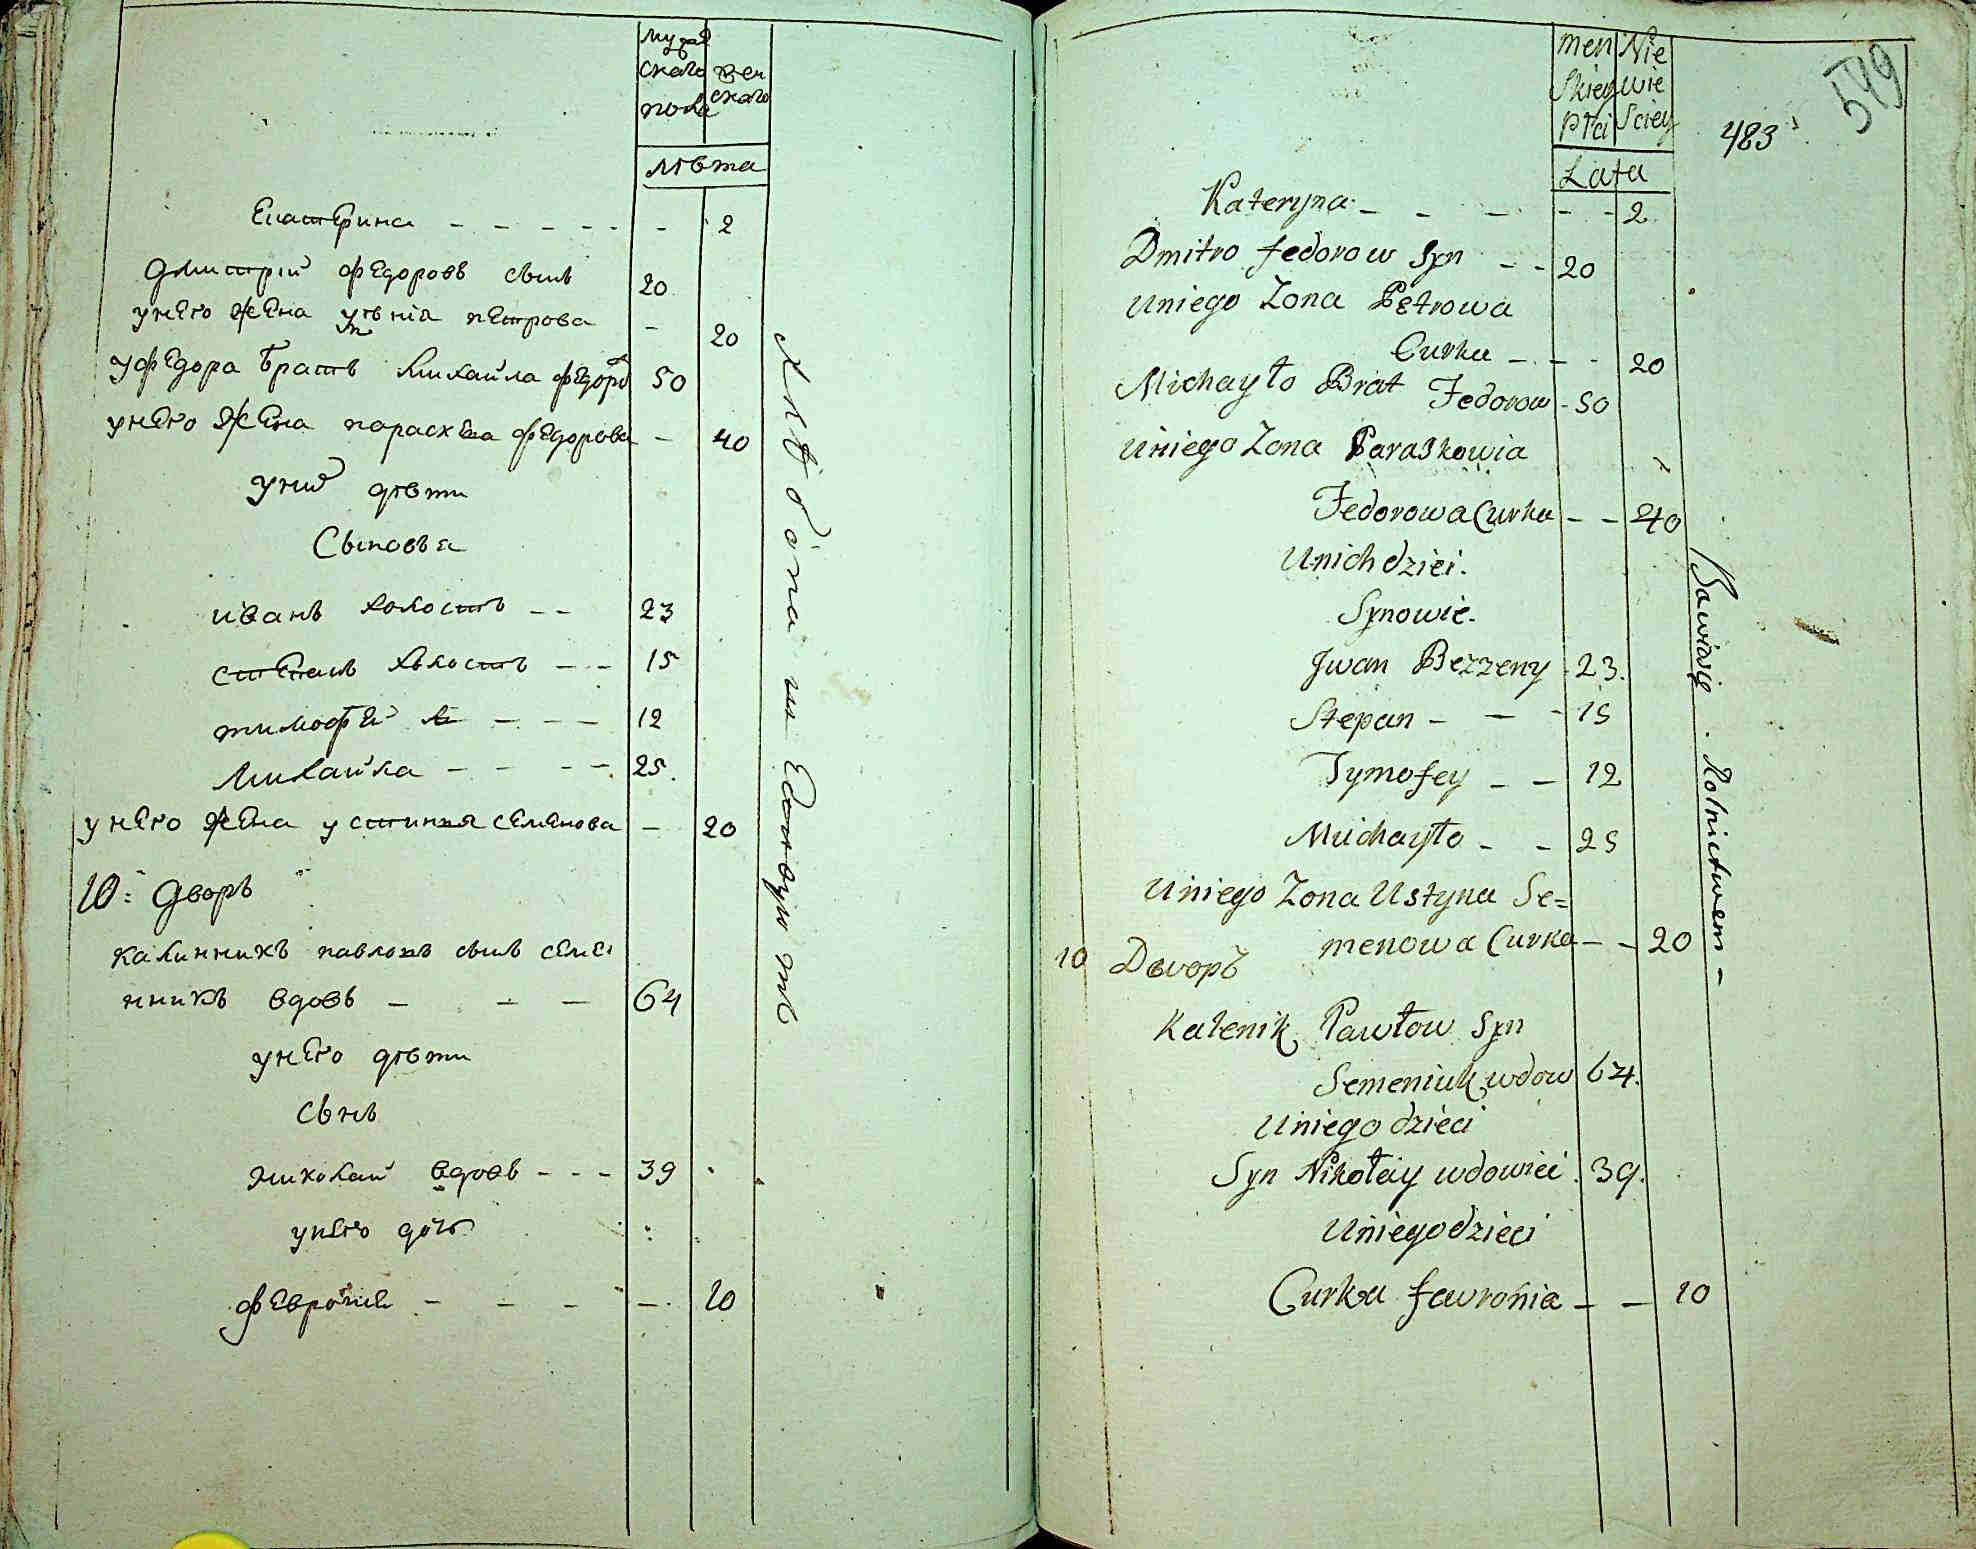 мужескаго пола
женскаго
лѣта
Екатерина - - - - - - 2
Дмитрій Федоровъ сынъ 20
у него жена Петрова - 20
у Федора братъ Михайла Федоро 50
у него жена Параскева Федорова - 40
у них дѣти
Сыновья
Иванъ холостъ - - 23
Степанъ холостъ - - 15
Тимофей - - - 12
Михайла - - - - 25.
у него жена Устинья Семенова - 20
10: Дворъ
Калинникъ Павловъ сынъ Семе
нникъ вдовъ - - - 64
у него дѣти
Сынъ
Николай вдовъ - - - 39
у него дочь
Феврония - - - - 10
хлѣбопашествуютъ
men Nie
skiey wie
płci Sciey
Lata
483
549
Kateryna - - - - - 2
Dmitro Fedorow Syn - - 20
Uniego Zona Petrowa
Curka - - - 20
Michayło Brat Fedorow - 50
Uniego Zona Paraskowia
Fedorowa Curka - - 40
Unich dzieci.
Synowie.
Jwan Bezzeny - 23.
Stepan - - - 15
Tymofey - - 12
Michayło - - 25
Uniego Zona Ustyna Se=
menowa Curka - - 20
10 Дворъ
Kalenik Pawłow Syn
Semeniuk wdow 64.
Uniego dzieci
Syn Nikołay wdowiec. 39.
Uniego dzieci
Curka Fawronia - - 10
Bawiąsię Rolnictwem -